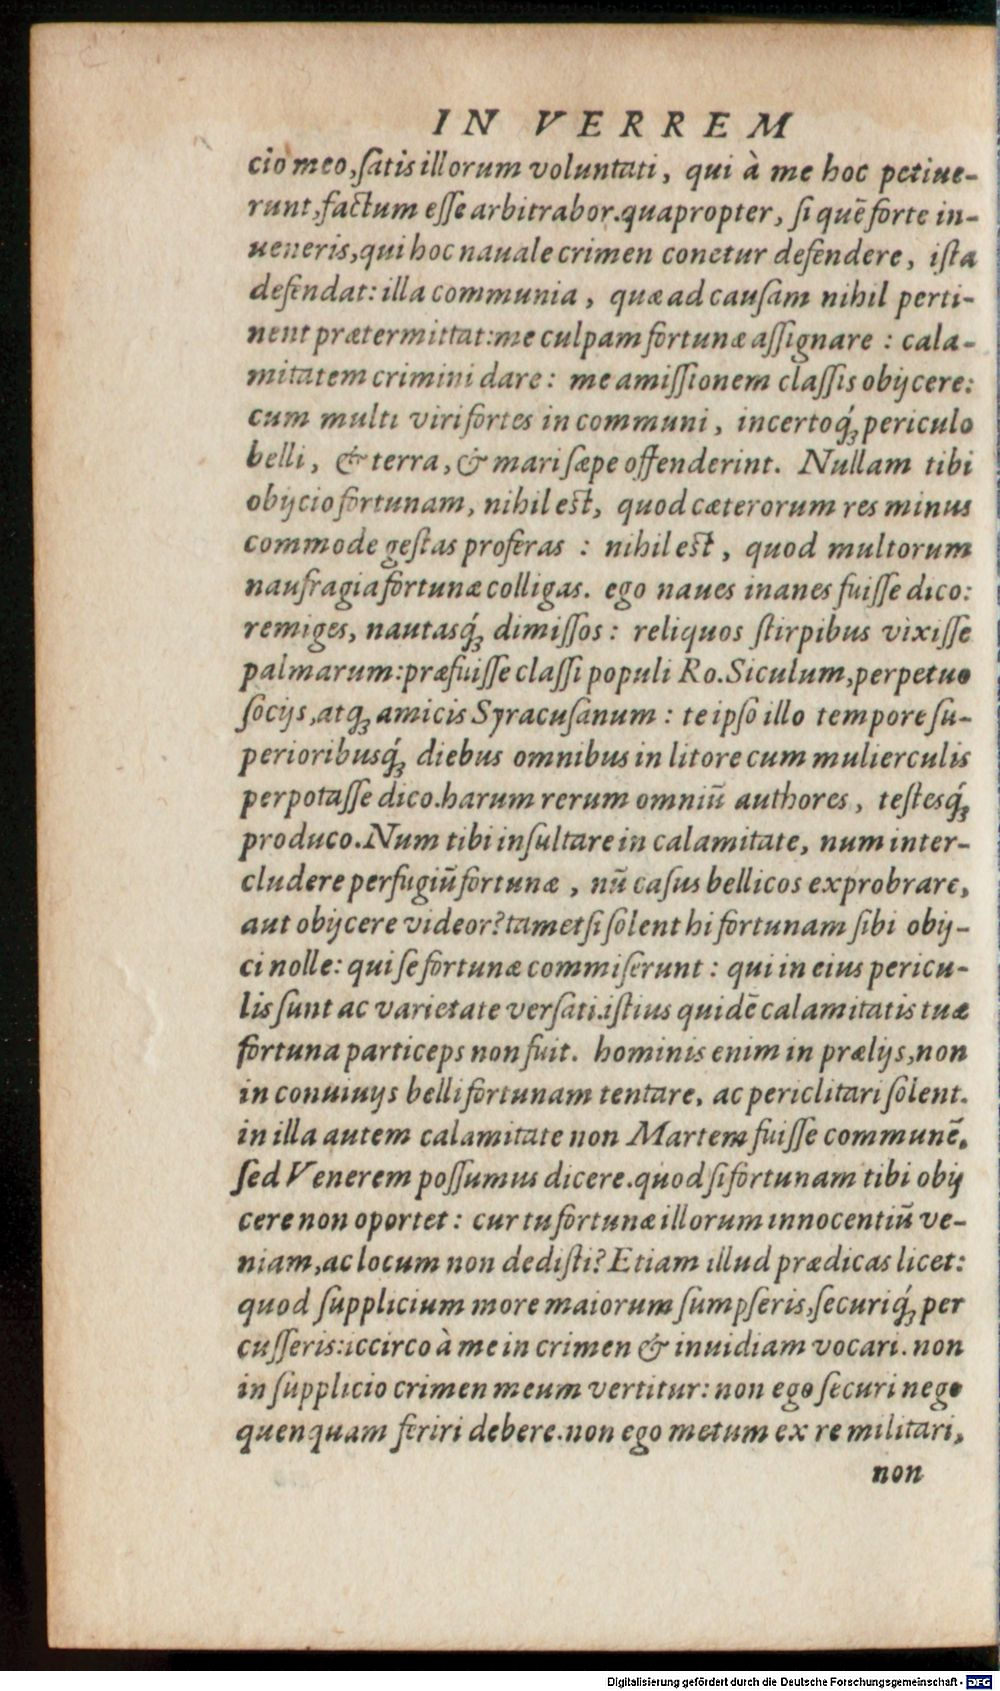 IN VERREM
cio meo, satis illorum voluntati, qui à me hoc petiue-
runt, factum esse arbitrabor. quapropter, si quē forte in-
ueneris, qui hoc nauale crimen conetur defendere, ista
defendat: illa communia, quæ ad causam nihil perti-
nent prætermittat: me culpam fortunæ assignare : cala-
mitatem crimini dare: me amissionem classis obijcere:
cum multi viri fortes in communi, incertoq́; periculo
belli, & terra, & mari sæpe offenderint. Nullam tibi
obijcio fortunam, nihil est, quod cæterorum res minus
commode gestas proferas : nihil est, quod multorum
naufragia fortunæ colligas. ego naues inanes fuisse dico:
remiges, nautasq́; dimissos: reliquos stirpibus vixisse
palmarum: præfuisse classi populi Ro. Siculum, perpetuo
socijs, atq; amicis Syracusanum : te ipso illo tempore su-
perioribusq́; diebus omnibus in litore cum mulierculis
perpotasse dico. harum rerum omniū authores, testesq́;
produco. Num tibi insultare in calamitate, num inter-
cludere perfugiū fortunæ, nū casus bellicos exprobrare,
aut obijcere videor? tametsi solent hi fortunam sibi obij-
ci nolle: qui se fortunæ commiserunt : qui in eius pericu-
lis sunt ac varietate versati. istius quidē calamitatis tuæ
fortuna particeps non fuit. hominis enim in prælijs, non
in conuiuijs belli fortunam tentare, ac periclitari solent.
in illa autem calamitate non Martem fuisse communē,
sed Venerem possumus dicere. quod si fortunam tibi obij
cere non oportet: cur tu fortunæ illorum innocentiū ve-
niam, ac locum non dedisti? Etiam illud prædicas licet:
quod supplicium more maiorum sumpseris, securiq́; per
cusseris: iccirco à me in crimen & inuidiam vocari. non
in supplicio crimen meum vertitur: non ego securi nego
quenquam feriri debere. non ego metum ex re militari,
non
Digitalisierung gefördert durch die Deutsche Forschungsgemeinschaft - DFG